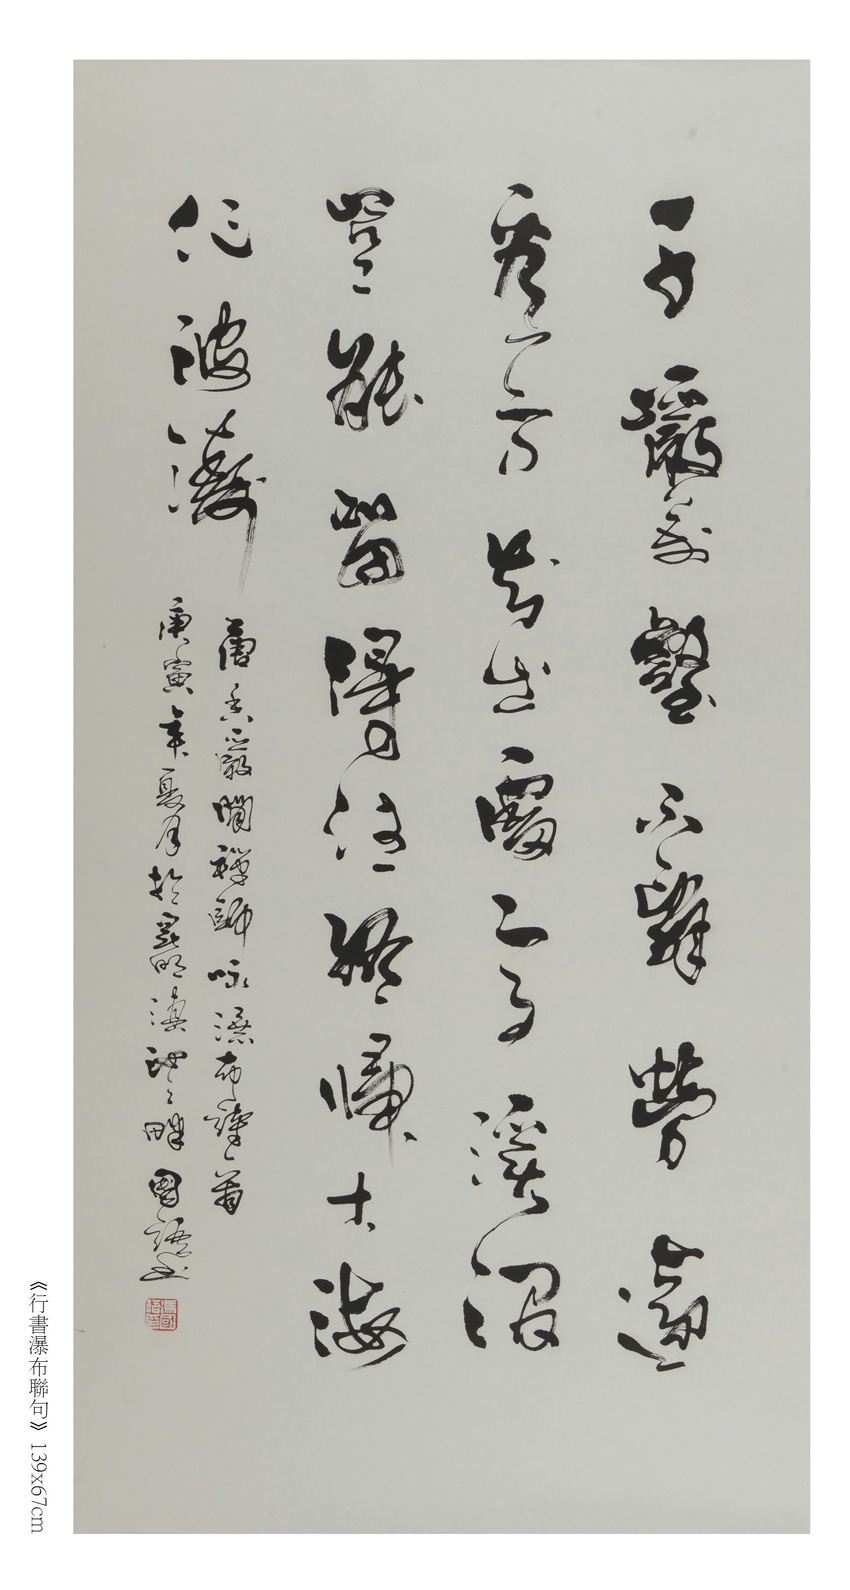 千巖萬壑不辭勞遠
看方知出處高溪澗
豈能留得住終歸大海
作波濤
香嚴閒禪師咏瀑布詩一首
庚寅年夏月於昆明滇池之畔國語书
《行書瀑布聯句》139x67cm